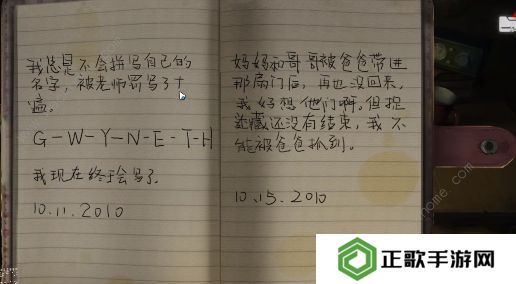 我总是不会拼写自己的
名字，被老师罚写了十
遍。
G-W-Y-N-E-T-H
我现在终于会写了
10.11.2010
妈妈和哥哥被爸爸带进
那扇门后，再也没回来，
我好想他们啊。但捉
迷藏还没有结束，我不
能被爸爸抓到。
10.15.2010
正歌手游网